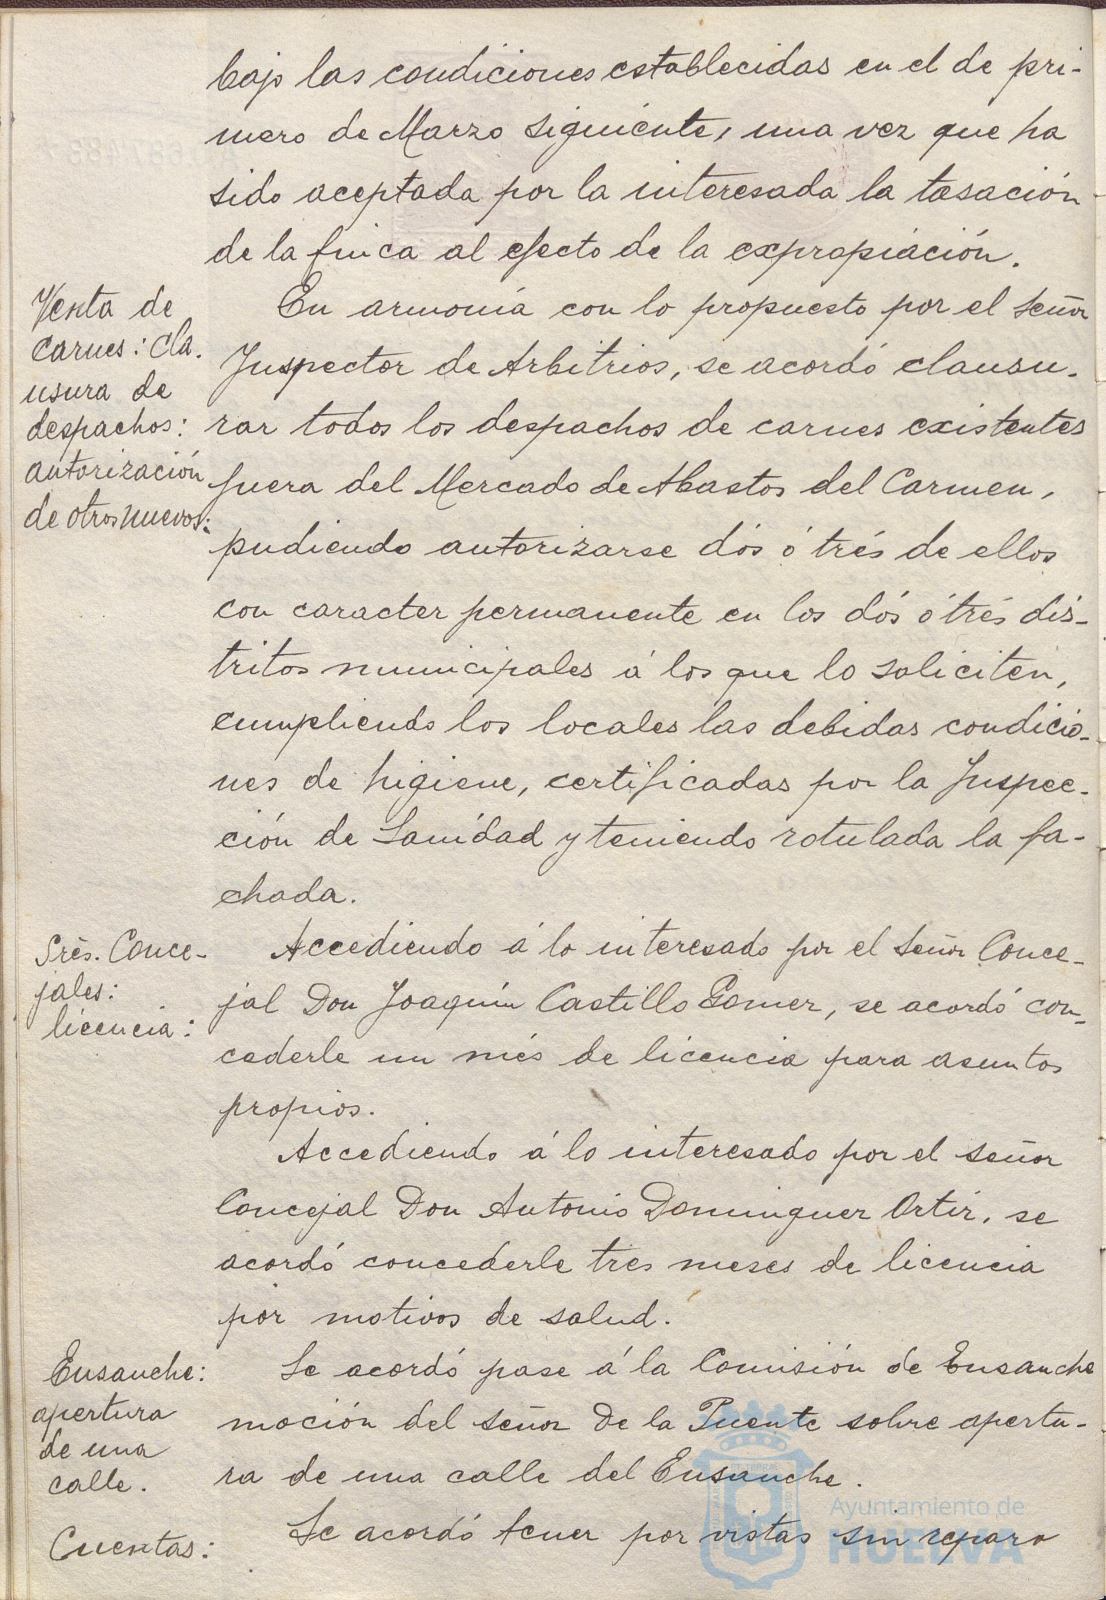 bajo las condiciones establecidas en el de pri-
mero de Marzo siguiente, una vez que ha
sido aceptada por la interesada la tasación
de la finca al efecto de la expropiación.
Venta de
carnes: cla.
usura de
despachos:
autorización
de otros nuevos:
En armonía con lo propuesto por el Señor
Inspector de Arbitrios, se acordó clausu.
rar todos los despachos de carnes existentes
fuera del Mercado de Abastos del Carmen,
pudiendo autorizarse dós ó trés de ellos
con caracter permanente en los dós ó trés dis-
tritos municipales á los que lo soliciten,
cumpliendo los locales las debidas condicio-
nes de higiene, certificadas por la Inspec-
ción de Sanidad y teniendo rotulada la fa-
chada.
Srés. Conce-
jales:
licencia:
Accediendo á lo interesado por el Señor Conce-
jal Don Joaquín Castillo Gomez, se acordó con-
cederle un més de licencia para asuntos
propios.
Accediendo á lo interesado por el señor
Concejal Don Antonio Dominguez Ortiz, se
acordó concederle tres meses de licencia
por motivos de salud.
Ensanche:
apertura
de una
calle.
Se acordó pase á la Comisión de Ensanche
moción del señor De la Puente sobre apertu-
ra de una calle del Ensanche.
Cuentas:
Se acordó tener por vistas sin reparo
Ayuntamiento de
HUELVA